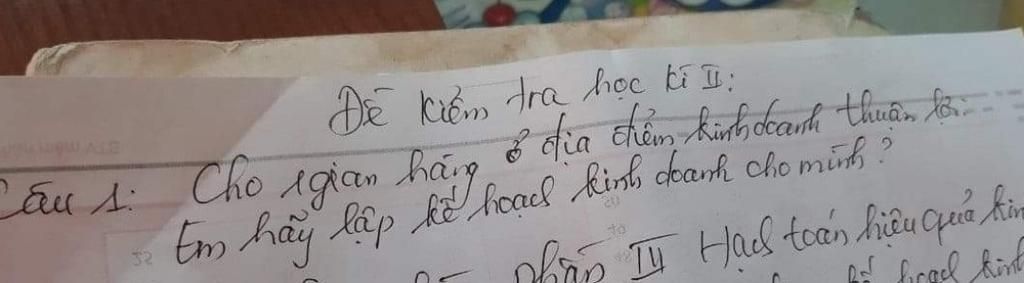 Đề kiểm tra học kì II:
Câu 1: Cho 1 gian hàng ở địa điểm kinh doanh thuận lợi.
Em hãy lập kế hoạch kinh doanh cho mình?
phần III Hạch toán hiệu quả kin
kế hoạch kinh